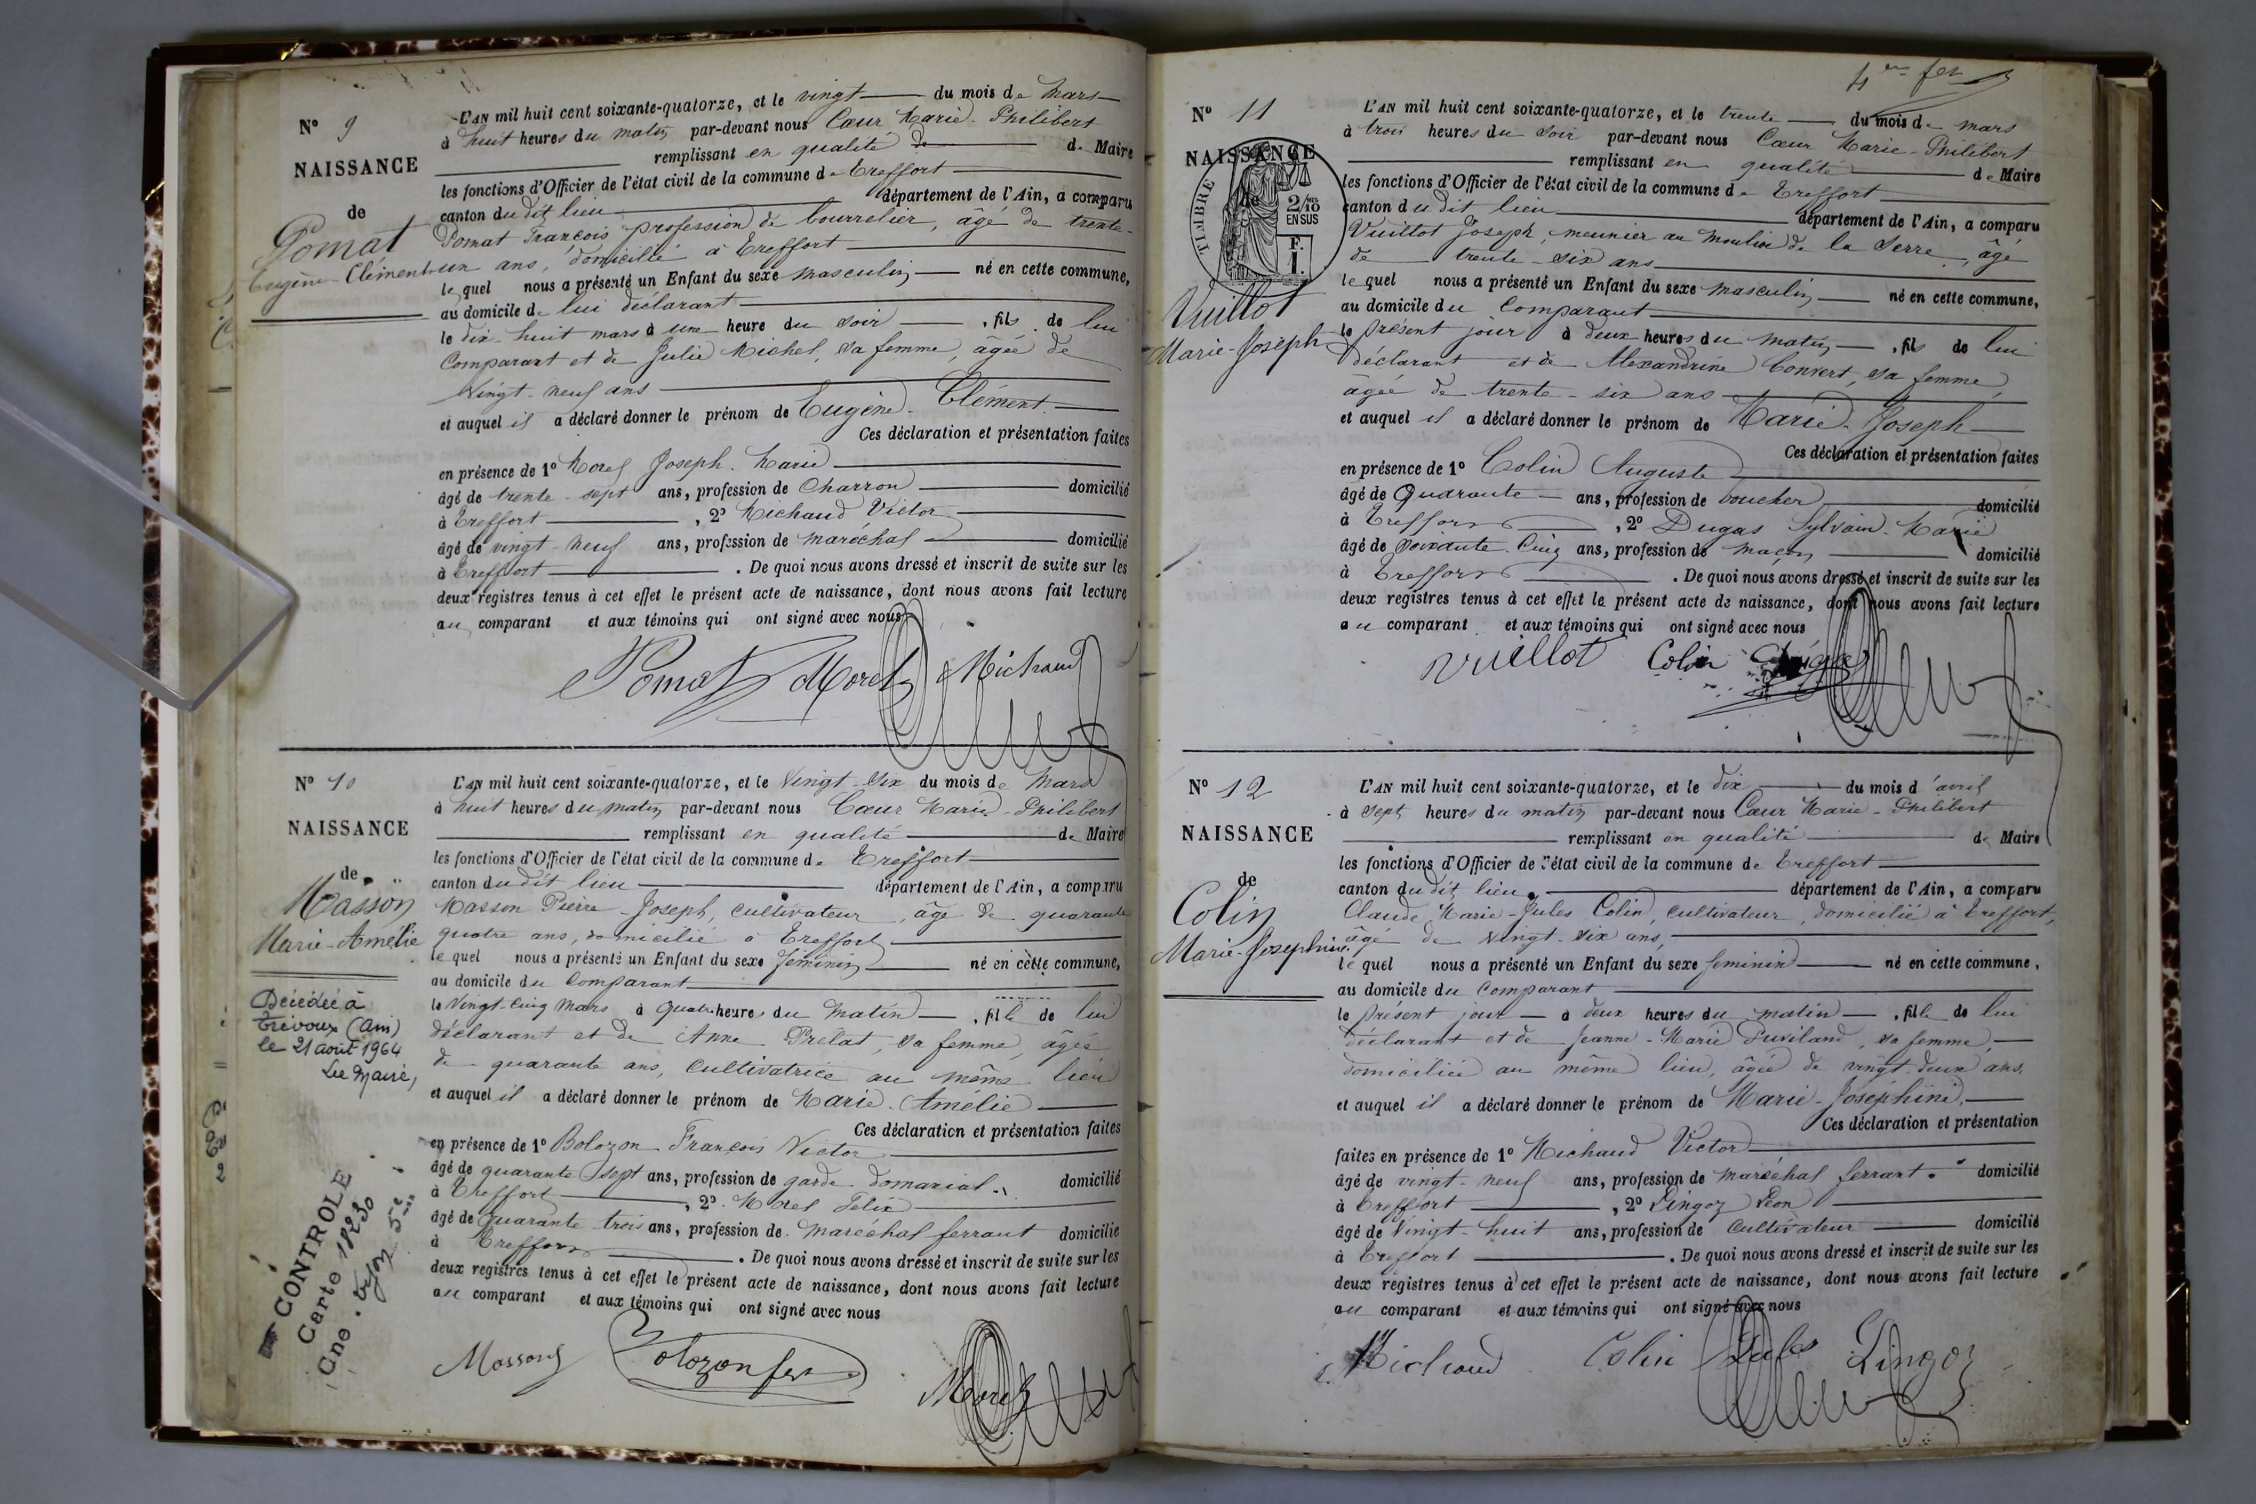 Nº 9
NAISSANCE
de
Pomat
Eugène-Clément
L'AN mil huit cent soixante-quatorze, et le vingt du mois de Mars
à huit heures du matin par-devant nous Cœur Marie-Philibert
remplissant en qualité de Maire
les fonctions d'Officier de l'état civil de la commune de Treffort
canton du dit lieu département de l'Ain, a comparu
Pomat François profession de bourrelier, âgé de trente-
un ans, domicilié à Treffort
lequel nous a présenté un Enfant du sexe masculin né en cette commune,
au domicile de lui déclarant
le dix-huit mars à une heure du soir, fils de lui
Comparant et de Julie Michel, sa femme, âgée de
Vingt-neuf ans
et auquel il a déclaré donner le prénom de Eugène-Clément.
Ces déclaration et présentation faites
en présence de 1º Morel Joseph-Marie
âgé de trente-sept ans, profession de Charron domicilié
à Treffort, 2º Michaud Victor
âgé de vingt-neuf ans, profession de maréchal domicilié
à Treffort. De quoi nous avons dressé et inscrit de suite sur les
deux registres tenus à cet effet le présent acte de naissance, dont nous avons fait lecture
au comparant et aux témoins qui ont signé avec nous
Pomat Morel Michaud
Nº 10
NAISSANCE
de
Masson
Marie-Amélie
Décédée à
Trévoux (Ain)
le 21 août 1964
Le Maire,
CONTROLE
Carte 18230
L'AN mil huit cent soixante-quatorze, et le Vingt-six du mois de Mars
à huit heures du matin par-devant nous Cœur Marie-Philibert
remplissant en qualité de Maire
les fonctions d'Officier de l'état civil de la commune de Treffort
canton du dit lieu département de l'Ain, a comparu
Masson Pierre-Joseph, cultivateur, âgé de quarante
quatre ans, domicilié à Treffort
lequel nous a présenté un Enfant du sexe féminin né en cette commune,
au domicile du Comparant
le Vingt-cinq Mars à quatre heures du matin, fille de lui
déclarant et de Anne Prélat, sa femme, âgée
de quarante ans, Cultivatrice au même lieu
et auquel il a déclaré donner le prénom de Marie-Amélie
Ces déclaration et présentation faites
en présence de 1º Bolozon François Victor
âgé de quarante sept ans, profession de garde domanial domicilié
à Treffort, 2º Morel Félix
âgé de quarante trois ans, profession de maréchal ferrant domicilié
à Treffort. De quoi nous avons dressé et inscrit de suite sur les
deux registres tenus à cet effet le présent acte de naissance, dont nous avons fait lecture
au comparant et aux témoins qui ont signé avec nous
Masson Bolozon Morel
Nº 11
NAISSANCE
de
TIMBRE
2/10
EN SUS
F.
1.
Vuillot
Marie-Joseph
L'AN mil huit cent soixante-quatorze, et le trente du mois de mars
à trois heures du soir par-devant nous Cœur Marie-Philibert
remplissant en qualité de Maire
les fonctions d'Officier de l'état civil de la commune de Treffort
canton du dit lieu département de l'Ain, a comparu
Vuillot Joseph, meunier au Moulin de la Serre, âgé
de trente-six ans
lequel nous a présenté un Enfant du sexe masculin né en cette commune,
au domicile du Comparant
le présent jour à deux heures du matin, fils de lui
déclarant et de Alexandrine Convert, sa femme,
âgée de trente-six ans
et auquel il a déclaré donner le prénom de Marie-Joseph
Ces déclaration et présentation faites
en présence de 1º Colin Auguste
âgé de Quarante ans, profession de boucher domicilié
à Treffort, 2º Dugas Sylvain-Marie
âgé de soixante-Cinq ans, profession de maçon domicilié
à Treffort. De quoi nous avons dressé et inscrit de suite sur les
deux registres tenus à cet effet le présent acte de naissance, dont nous avons fait lecture
au comparant et aux témoins qui ont signé avec nous
Vuillot Colin
Nº 12
NAISSANCE
de
Colin
Marie-Joséphine
L'AN mil huit cent soixante-quatorze, et le dix du mois d'avril
à sept heures du matin par-devant nous Cœur Marie-Philibert
remplissant en qualité de Maire
les fonctions d'Officier de l'état civil de la commune de Treffort
canton du dit lieu département de l'Ain, a comparu
Claude Marie-Jules Colin, cultivateur, domicilié à Treffort,
âgé de vingt-six ans,
lequel nous a présenté un Enfant du sexe féminin né en cette commune,
au domicile du Comparant
le présent jour à deux heures du matin, fille de lui
déclarant et de Jeanne-Marie Puvilland, sa femme,
domiciliée au même lieu, âgée de vingt-deux ans.
et auquel il a déclaré donner le prénom de Marie-Joséphine.
Ces déclaration et présentation
faites en présence de 1º Michaud Victor
âgé de vingt-neuf ans, profession de maréchal ferrant domicilié
à Treffort, 2º Lingoz Léon
âgé de Vingt-huit ans, profession de Cultivateur domicilié
à Treffort. De quoi nous avons dressé et inscrit de suite sur les
deux registres tenus à cet effet le présent acte de naissance, dont nous avons fait lecture
au comparant et aux témoins qui ont signé avec nous
Michaud Colin Jules Lingoz